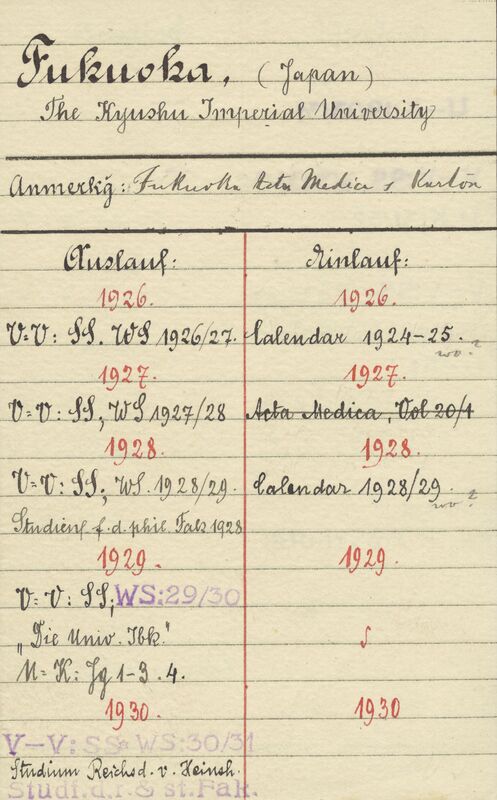 Fukuoka, (Japan)
The Kyushu Imperial University
Anmerkg: Fukuoka Acta Medica s Karton
Auslauf:
1926.
V=V: SS. WS 1926/27.
1927.
V=V: SS, WS 1927/28
1928.
V=V: SS, WS. 1928/29.
Studienf f. d. phil. Fak 1928
1929.
V=V: SS, WS:29/30
"Die Univ. Ibk."
U=K: Jg 1-3. 4.
1930.
V-V: SS= WS:30/31
Studium Reichsd. v. Heinsh.
Studf.d.r.& st.Fak.
Einlauf:
1926.
Calendar 1924-25.
wo?
1927.
Acta Medica, Vol 20/1
1928.
Calendar 1928/29.
wo?
1929.
1930